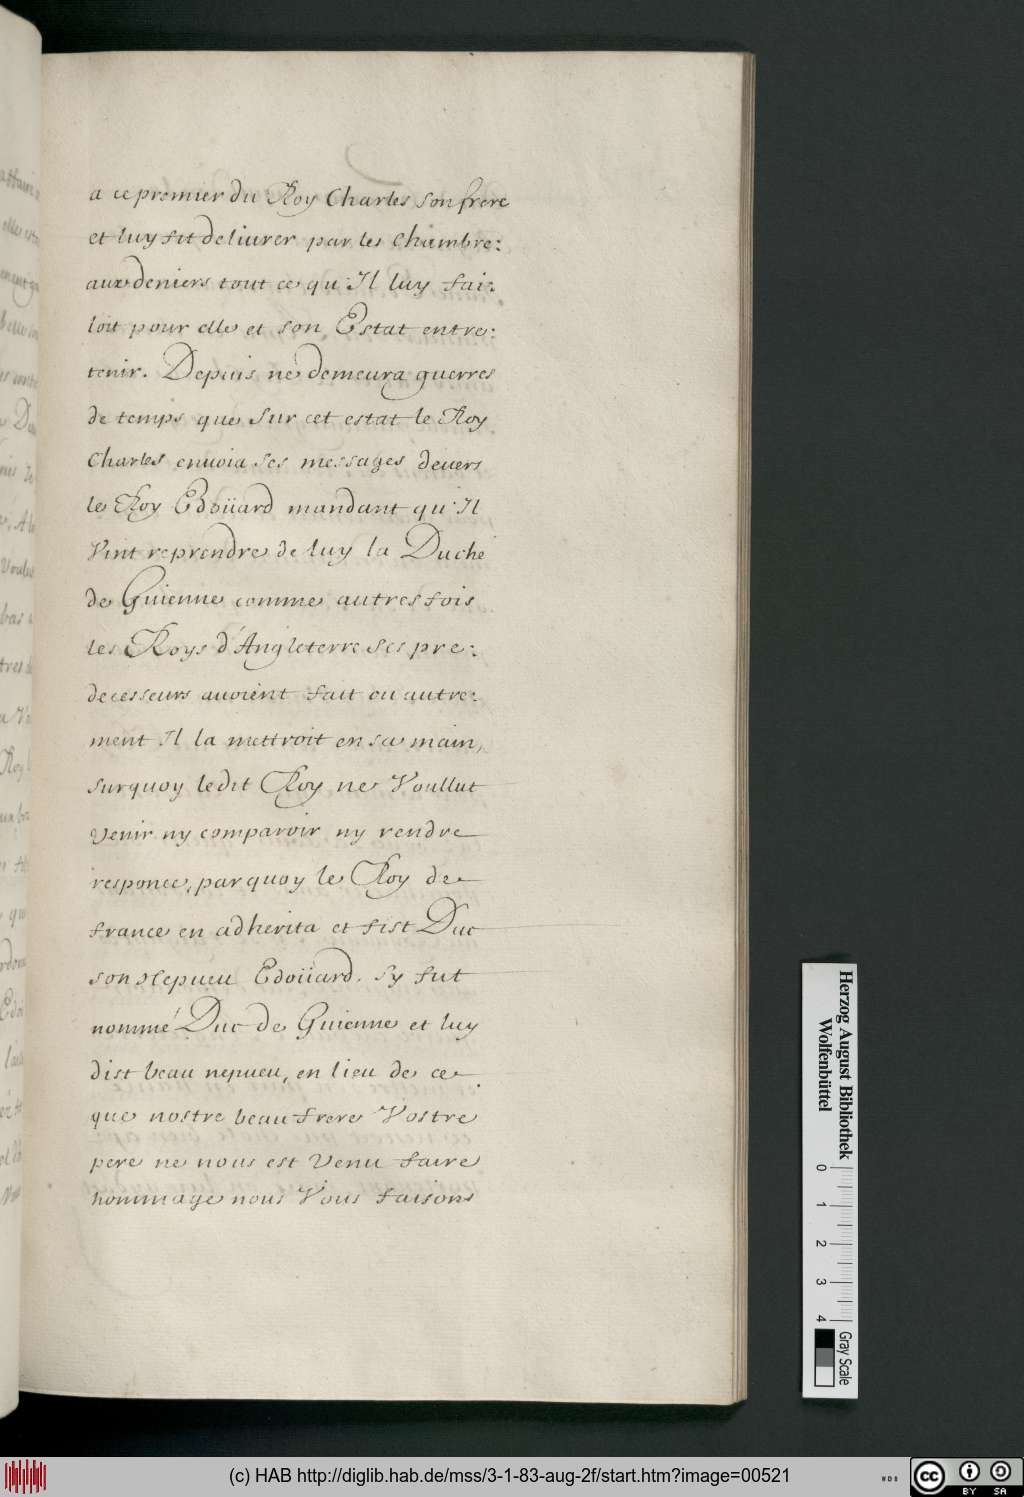 a ce premier du Roy Charles son frere
et luy fit deliurer par les Chambre:
aux deniers tout ce qu'Il luy fai:
loit pour elle et son Estat entre:
tenir. Depuis ne demeura guerres
de temps que sur cet estat le Roy
Charles enuoia ses messages deuers
le Roy Edoüard mandant qu'Il
Vint reprendre de luy la Duché
de Guienne comme autresfois
les Roys d'Angleterre ses pre:
decesseurs auoient fait ou autre:
ment Il la mettroit en sa main,
surquoy ledit Roy ne Voullut
Venir ny comparoir ny rendre
responce, par quoy le Roy de
france en adherita et fist Duc
son Nepueu Edoüard. Sy fut
nommé Duc de Guienne et luy
dist beau nepueu, en lieu de ce
que nostre beau frere Vostre
pere ne nous est Venu faire
hommage nous Vous faisons
Herzog August Bibliothek
Wolfenbüttel
0 1 2 3 4
Gray Scale
(c) HAB http://diglib.hab.de/mss/3-1-83-aug-2f/start.htm?image=00521
cc BY SA